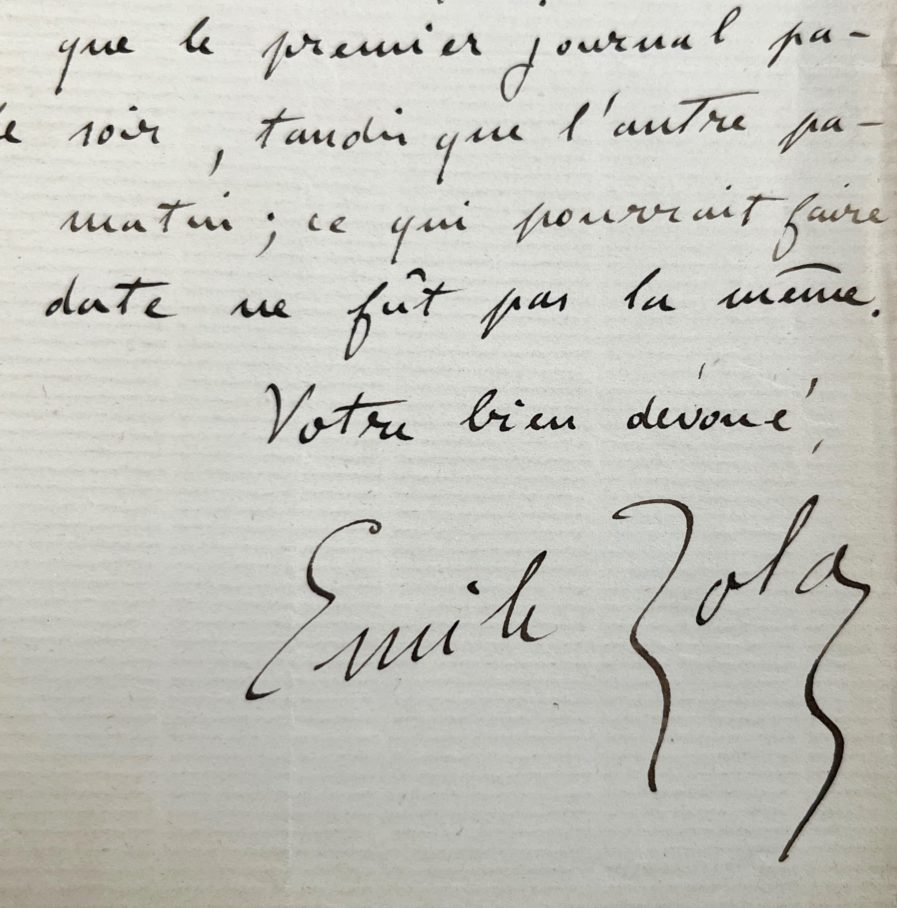 que le premier journal pa-
le soir, tandis que l'autre pa-
matin ; ce qui pourrait faire
date ne fût pas la même.
Votre bien dévoué,
Emile Zola